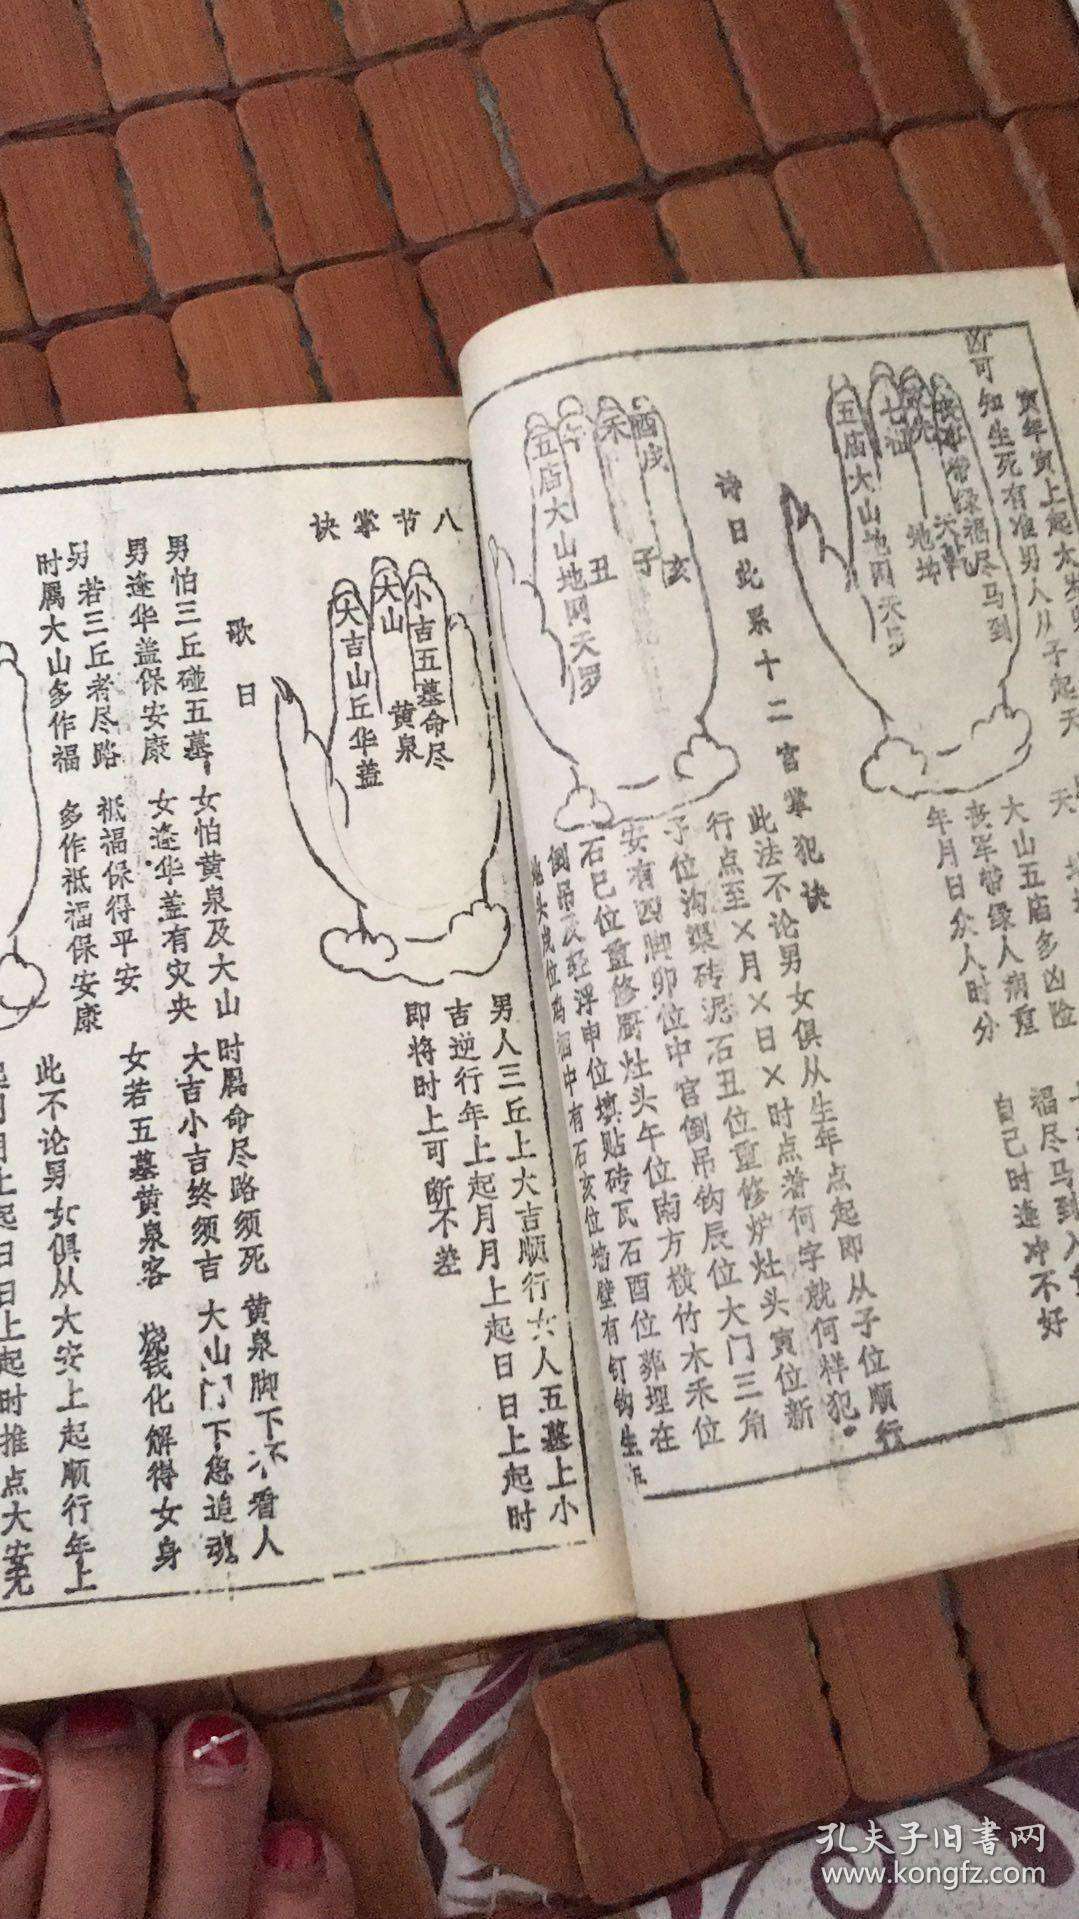 寅年寅上起太岁
凶可知生死有准男人从子起天
丧军带绿福尽马到
七
五庙大山地网天罗
大山五庙多凶险
丧军带绿人病重
年月日众人时分
福尽马到入
自己时逢冲不好
诗曰此系十二宫掌犯诀
酉戌
亥
禾
子
午
丑
五庙大山地网天罗
此法不论男女俱从生年点起即从子位顺行
行点至×月×日×时点着何字就何样犯。
子位沟渠砖泥石丑位重修炉灶头寅位新
安有四脚卯位中宫倒吊钩辰位大门三角
石巳位重修厨灶头午位南方横竹木禾位
倒吊及轻浮申位填贴砖瓦石酉位葬埋在
中有石亥位墙壁有钉钩生
八节掌诀
小吉五墓命尽
黄泉
大山
大吉山丘华盖
男人三丘上大吉顺行女人五墓上小
吉逆行年上起月月上起日日上起时
即将时上可断不差
歌曰
男怕三丘碰五墓 女怕黄泉及大山 时属命尽路须死 黄泉脚下不看人
男逢华盖保安康 女逢华盖有灾央 大吉小吉终须吉 大山门下急追魂。
男若三丘者尽路 祗福保得平安 女若五墓黄泉客 烧钱化解得女身
时属大山多作福 多作祗福保安康
此不论男女俱从大安上起顺行年上
起月月上起日日上起时推点大安无
孔夫子旧书网
www.kongfz.com